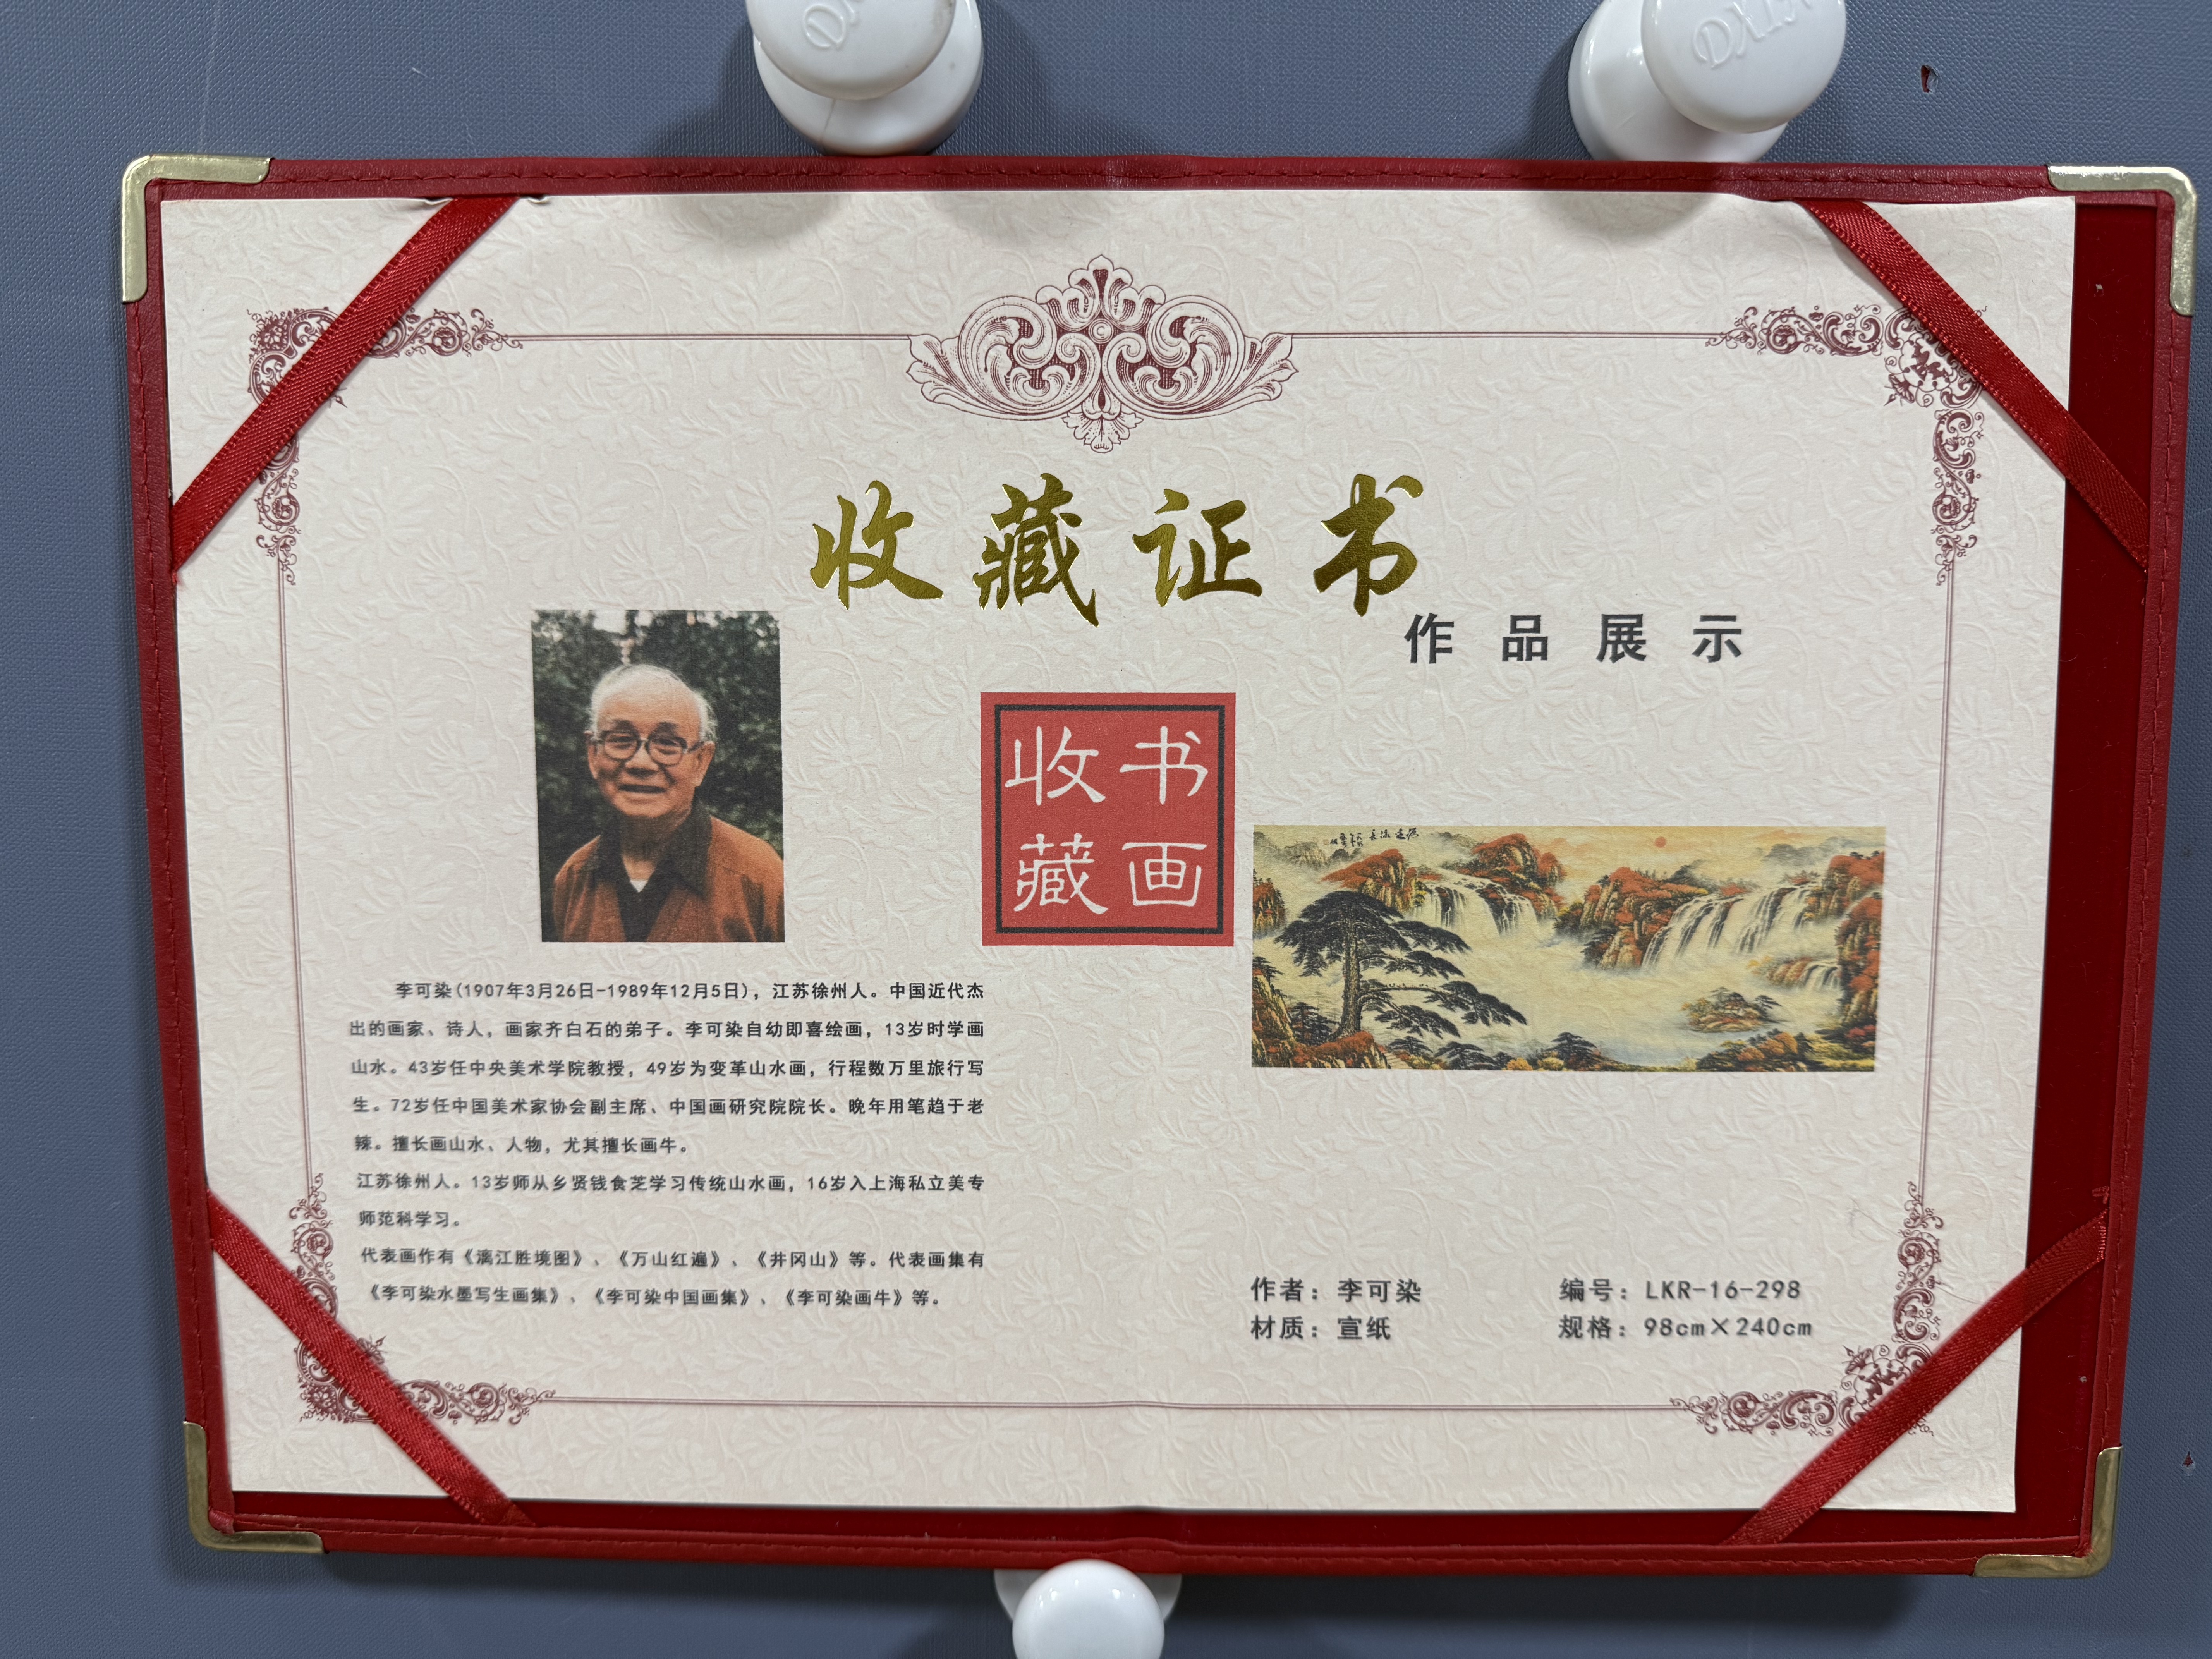 收藏证书
作品展示
收书
藏画
李可染(1907年3月26日-1989年12月5日)，江苏徐州人。中国近代杰
出的画家、诗人，画家齐白石的弟子。李可染自幼即喜绘画，13岁时学画
山水。43岁任中央美术学院教授，49岁为变革山水画，行程数万里旅行写
生。72岁任中国美术家协会副主席、中国画研究院院长。晚年用笔趋于老
辣。擅长画山水、人物，尤其擅长画牛。
江苏徐州人。13岁师从乡贤钱食芝学习传统山水画，16岁入上海私立美专
师范科学习。
代表画作有《漓江胜境图》、《万山红遍》、《井冈山》等。代表画集有
《李可染水墨写生画集》、《李可染中国画集》、《李可染画牛》等。
作者：李可染
编号：LKR-16-298
材质：宣纸
规格：98cm×240cm